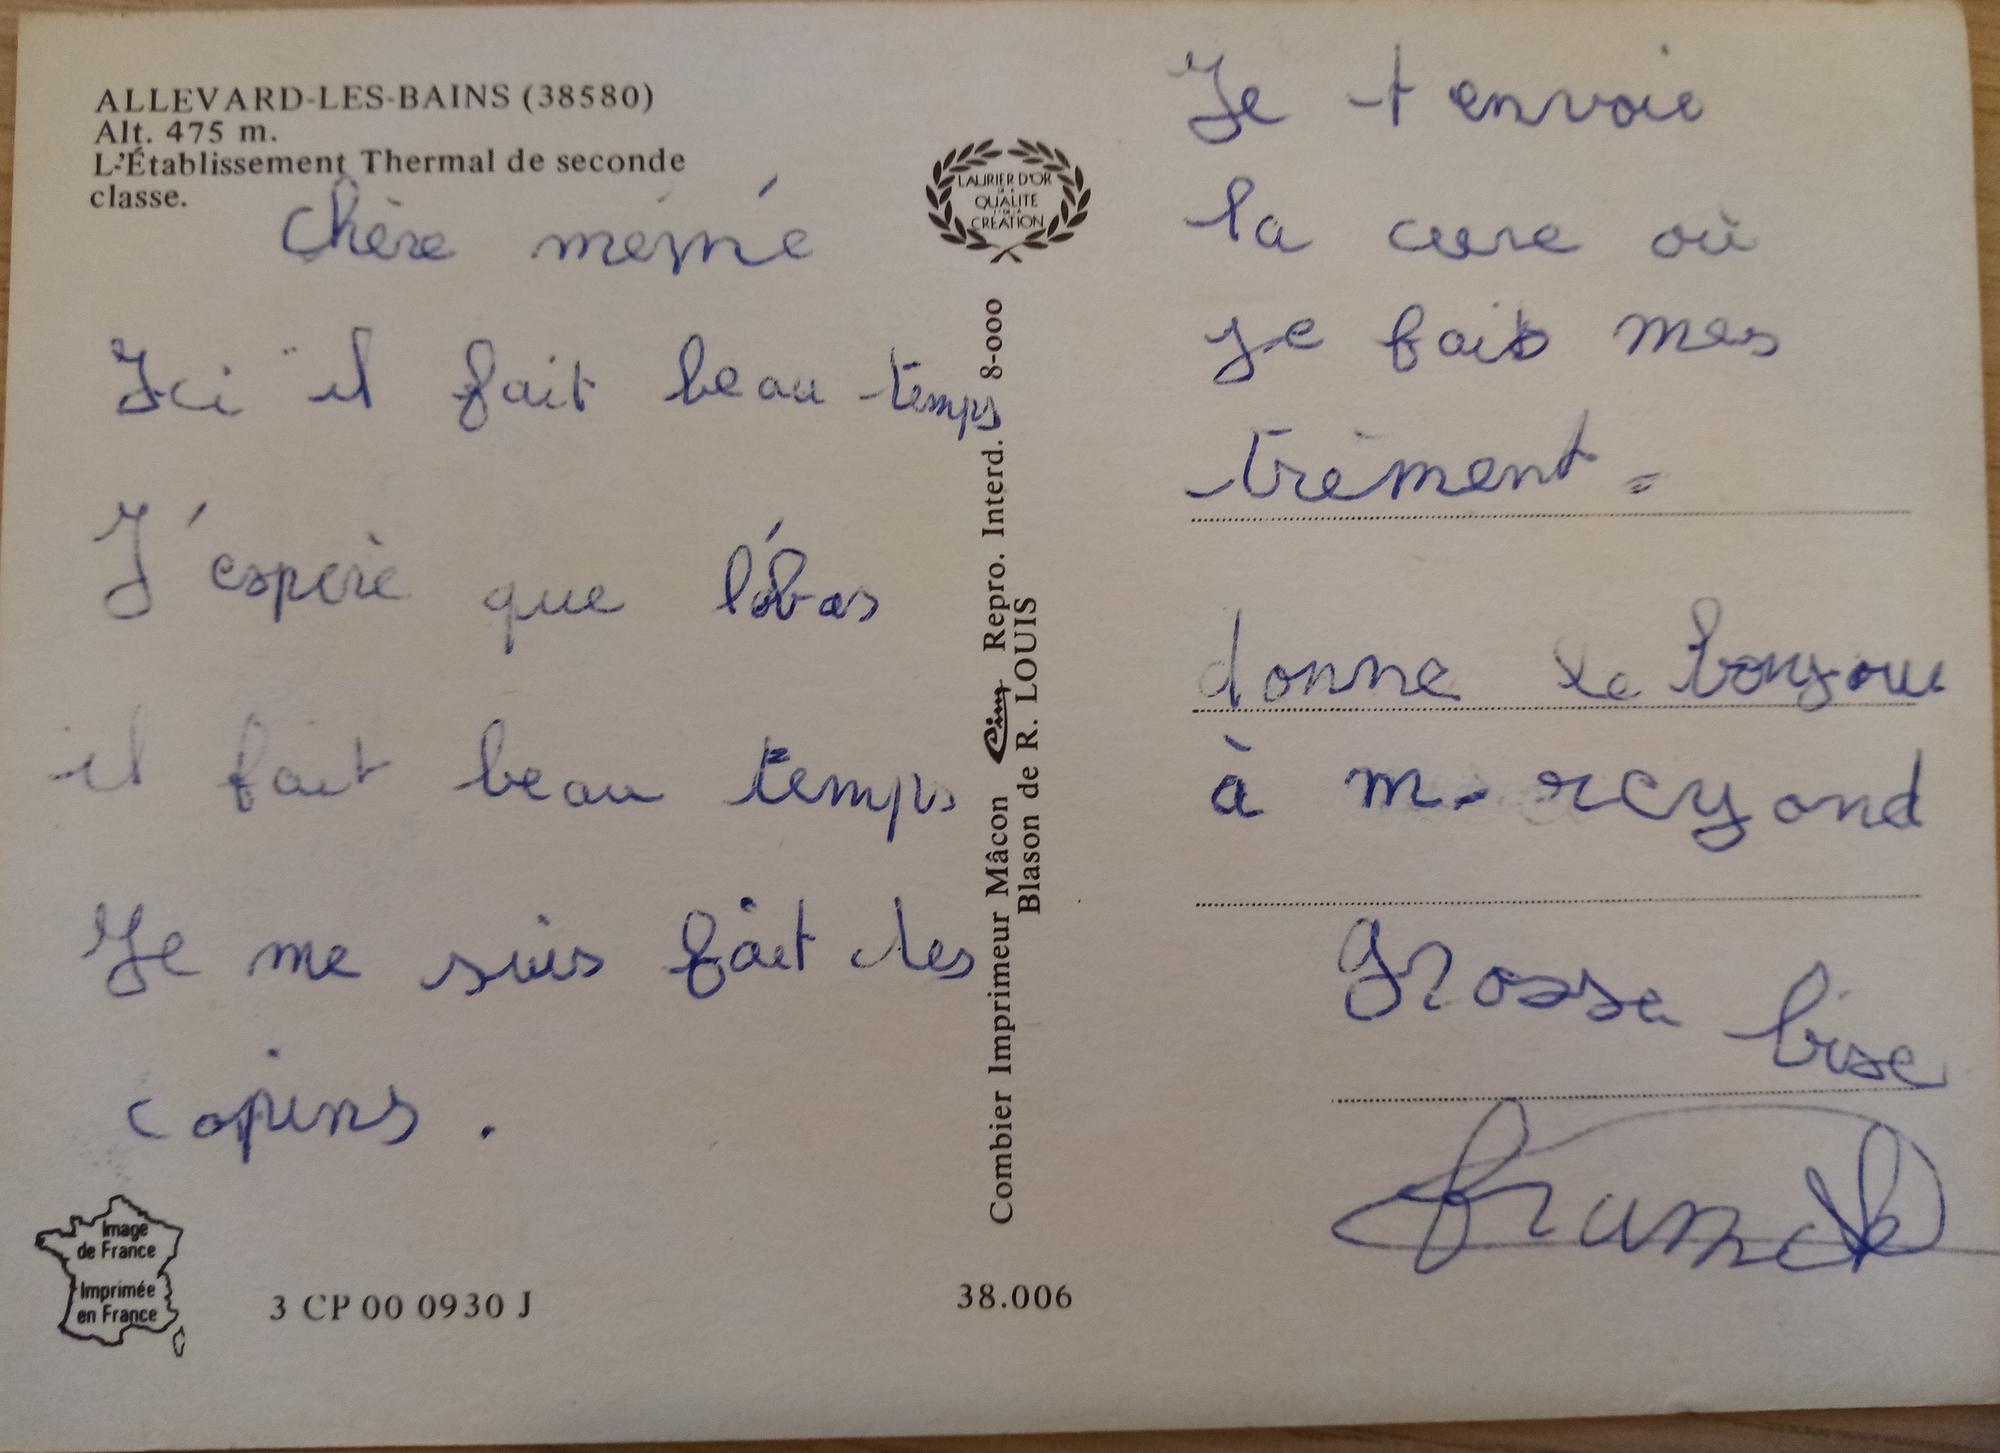 ALLEVARD-LES-BAINS (38580)
Alt. 475 m.
L'Établissement Thermal de seconde
classe.
chère mémé
Ici il fait beau temps
J'espère que lóbas
il fait beau temps
Je me suis fait des
copins.
Image
de France
Imprimée
en France
3 CP 00 0930 J
LAURIER D'OR
DE LA
QUALITE
CREATION
Combier Imprimeur Mâcon Cim Repro. Interd. 8-000
Blason de R. LOUIS
38.006
Je t envoie
la cure où
je fais mes
trèment.
donne le bonjou
à
Grosse bise
Franck